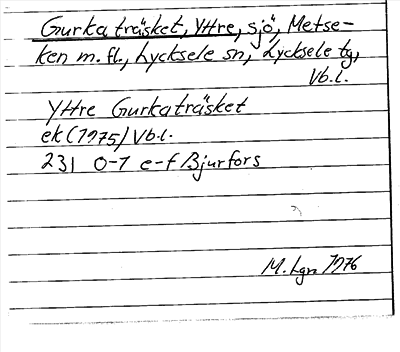 Gurkaträsket, Yttre, sjö, Metse-
ken m. fl., Lycksele sn, Lycksele tg,
Vb. l.
Yttre Gurkaträsket
ek (1975) Vb. l.
231 0-1 e-f Bjurfors
M. Lgn 1976